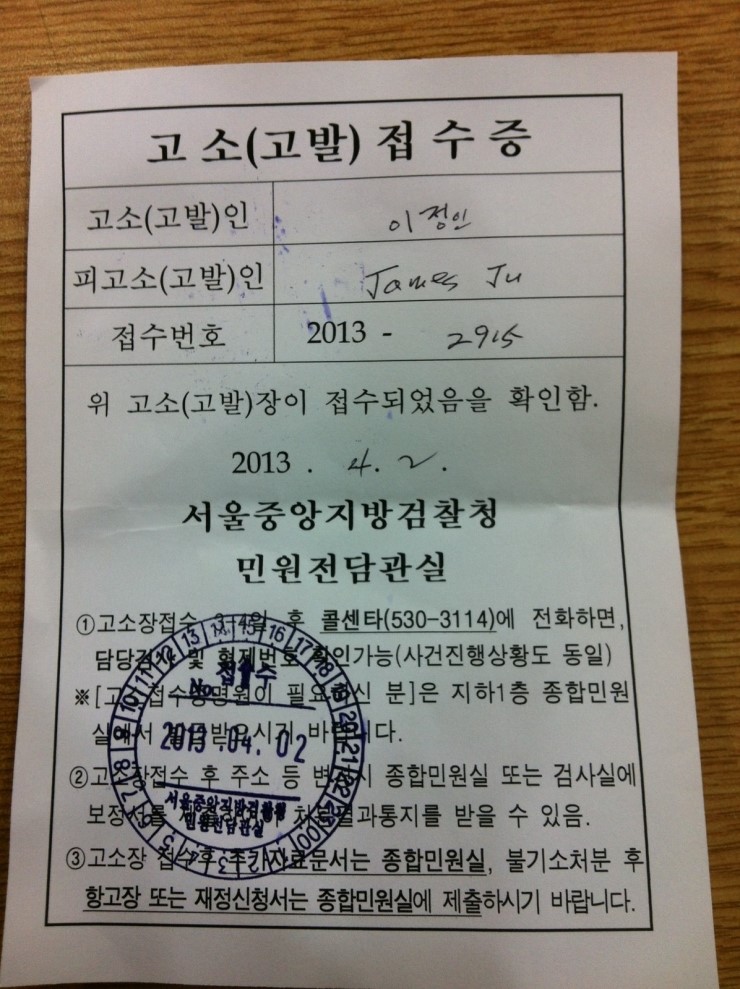 고 소(고발) 접 수 증
고소(고발)인 이정인
피고소(고발)인 James Ju
접수번호 2013 - 2915
위 고소(고발)장이 접수되었음을 확인함.
2013 . 4. 2.
서울중앙지방검찰청
민원전담관실
①고소장접수 3-4일 후 콜센타(530-3114)에 전화하면,
담당검사 및 형제번호 확인가능(사건진행상황도 동일)
※[고소접수증명원이 필요하신 분]은 지하1층 종합민원
실에서 발급받으시기 바랍니다.
②고소장접수 후 주소 등 변경시 종합민원실 또는 검사실에
보정서를 처분결과통지를 받을 수 있음.
③고소장 접수후 추가자료문서는 종합민원실, 불기소처분 후
항고장 또는 재정신청서는 종합민원실에 제출하시기 바랍니다.
접수
No.
2013.04.02
서울중앙지방검찰청
민원전담관실